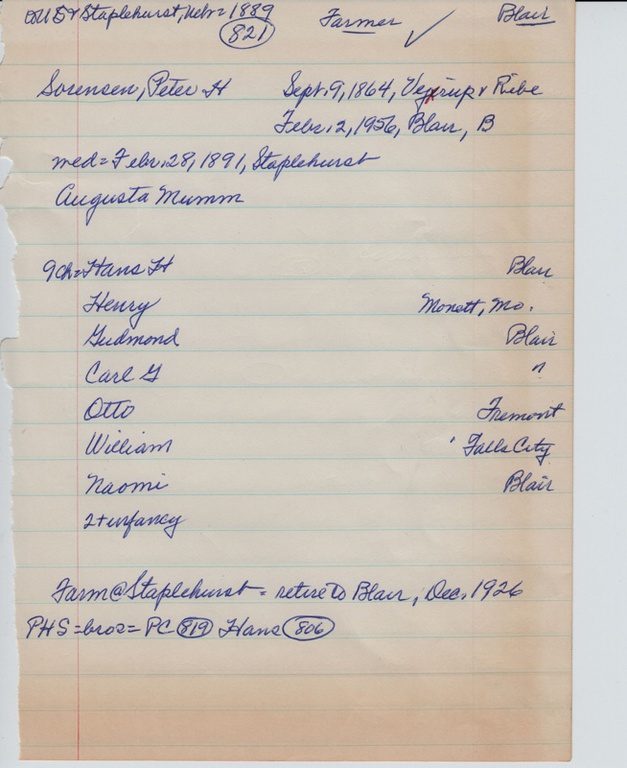 Staplehurst, Nebr = 1889 Farmer ✓ Blair
821
Sorensen, Peter H Sept. 9, 1864, Vejrup, Ribe
Febr. 2, 1956, Blair, B
med = Febr. 28, 1891, Staplehurst
Augusta Mumm
9ch = Hans H Blair
Henry Monett, Mo.
Gudmond Blair
Carl G "
Otto Fremont
William Falls City
Naomi Blair
2 + infancy
Farm @ Staplehurst = retire to Blair, Dec. 1926
PHS = bros = PC 819 Hans 806